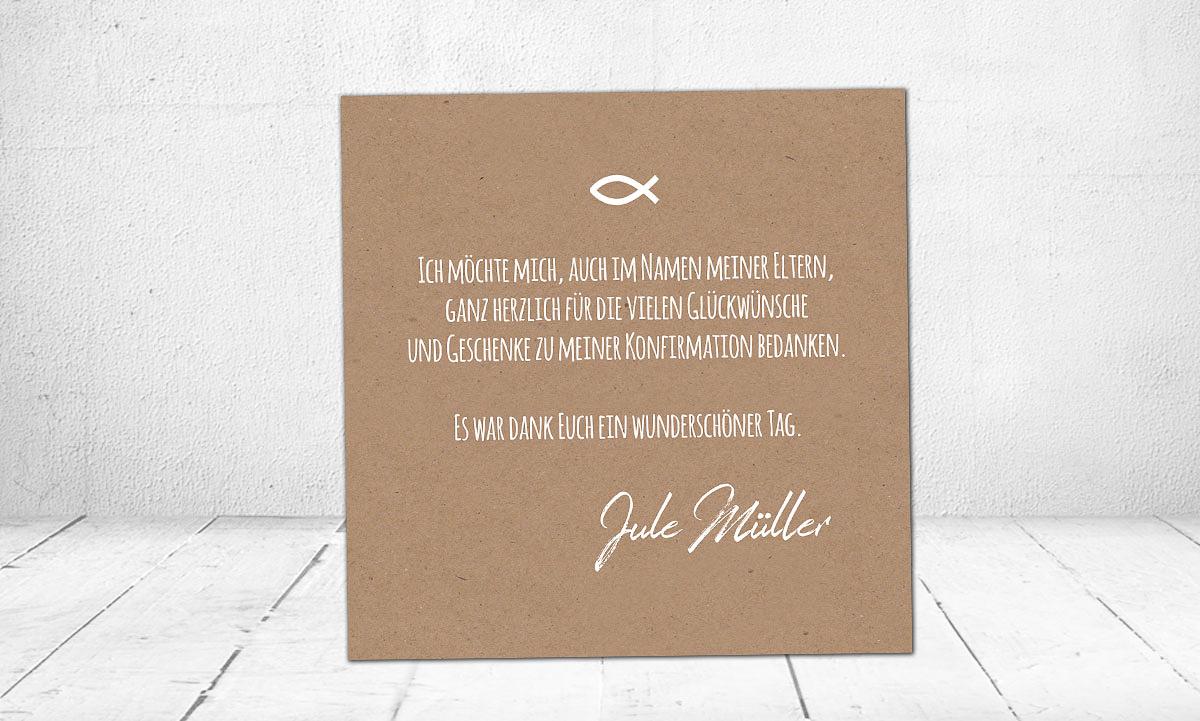 Ich möchte mich, auch im Namen meiner Eltern,
ganz herzlich für die vielen Glückwünsche
und Geschenke zu meiner Konfirmation bedanken.
Es war dank Euch ein wunderschöner Tag.
Jule Müller